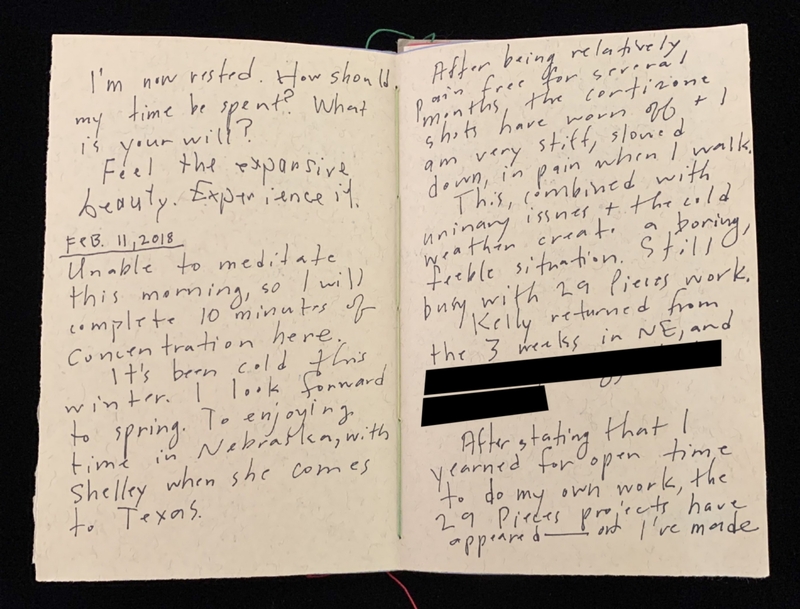 I'm now rested. How should
my time be spent? What
is your will?
Feel the expansive
beauty. Experience it.
FEB. 11, 2018
Unable to meditate
this morning, so I will
complete 10 minutes of
concentration here.
It's been cold this
winter. I look forward
to spring. To enjoying
time in Nebraska, with
Shelley when she comes
to Texas.
After being relatively
pain free for several
months, the cortizone
shots have worn off + I
am very stiff, slowed
down, in pain when I walk.
This, combined with
urinary issues + the cold
weather create a boring,
feeble situation. Still
busy with 29 Pieces work.
Kelly returned from
the 3 weeks in NE, and
After stating that I
yearned for open time
to do my own work, the
29 Pieces projects have
appeared— I've made